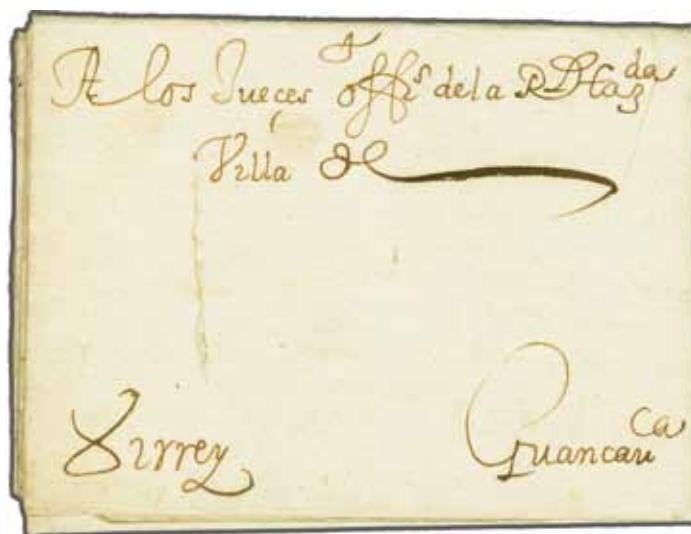 A los Jueçes offis de la R Hazda
Villa de
Virrey Guancauca